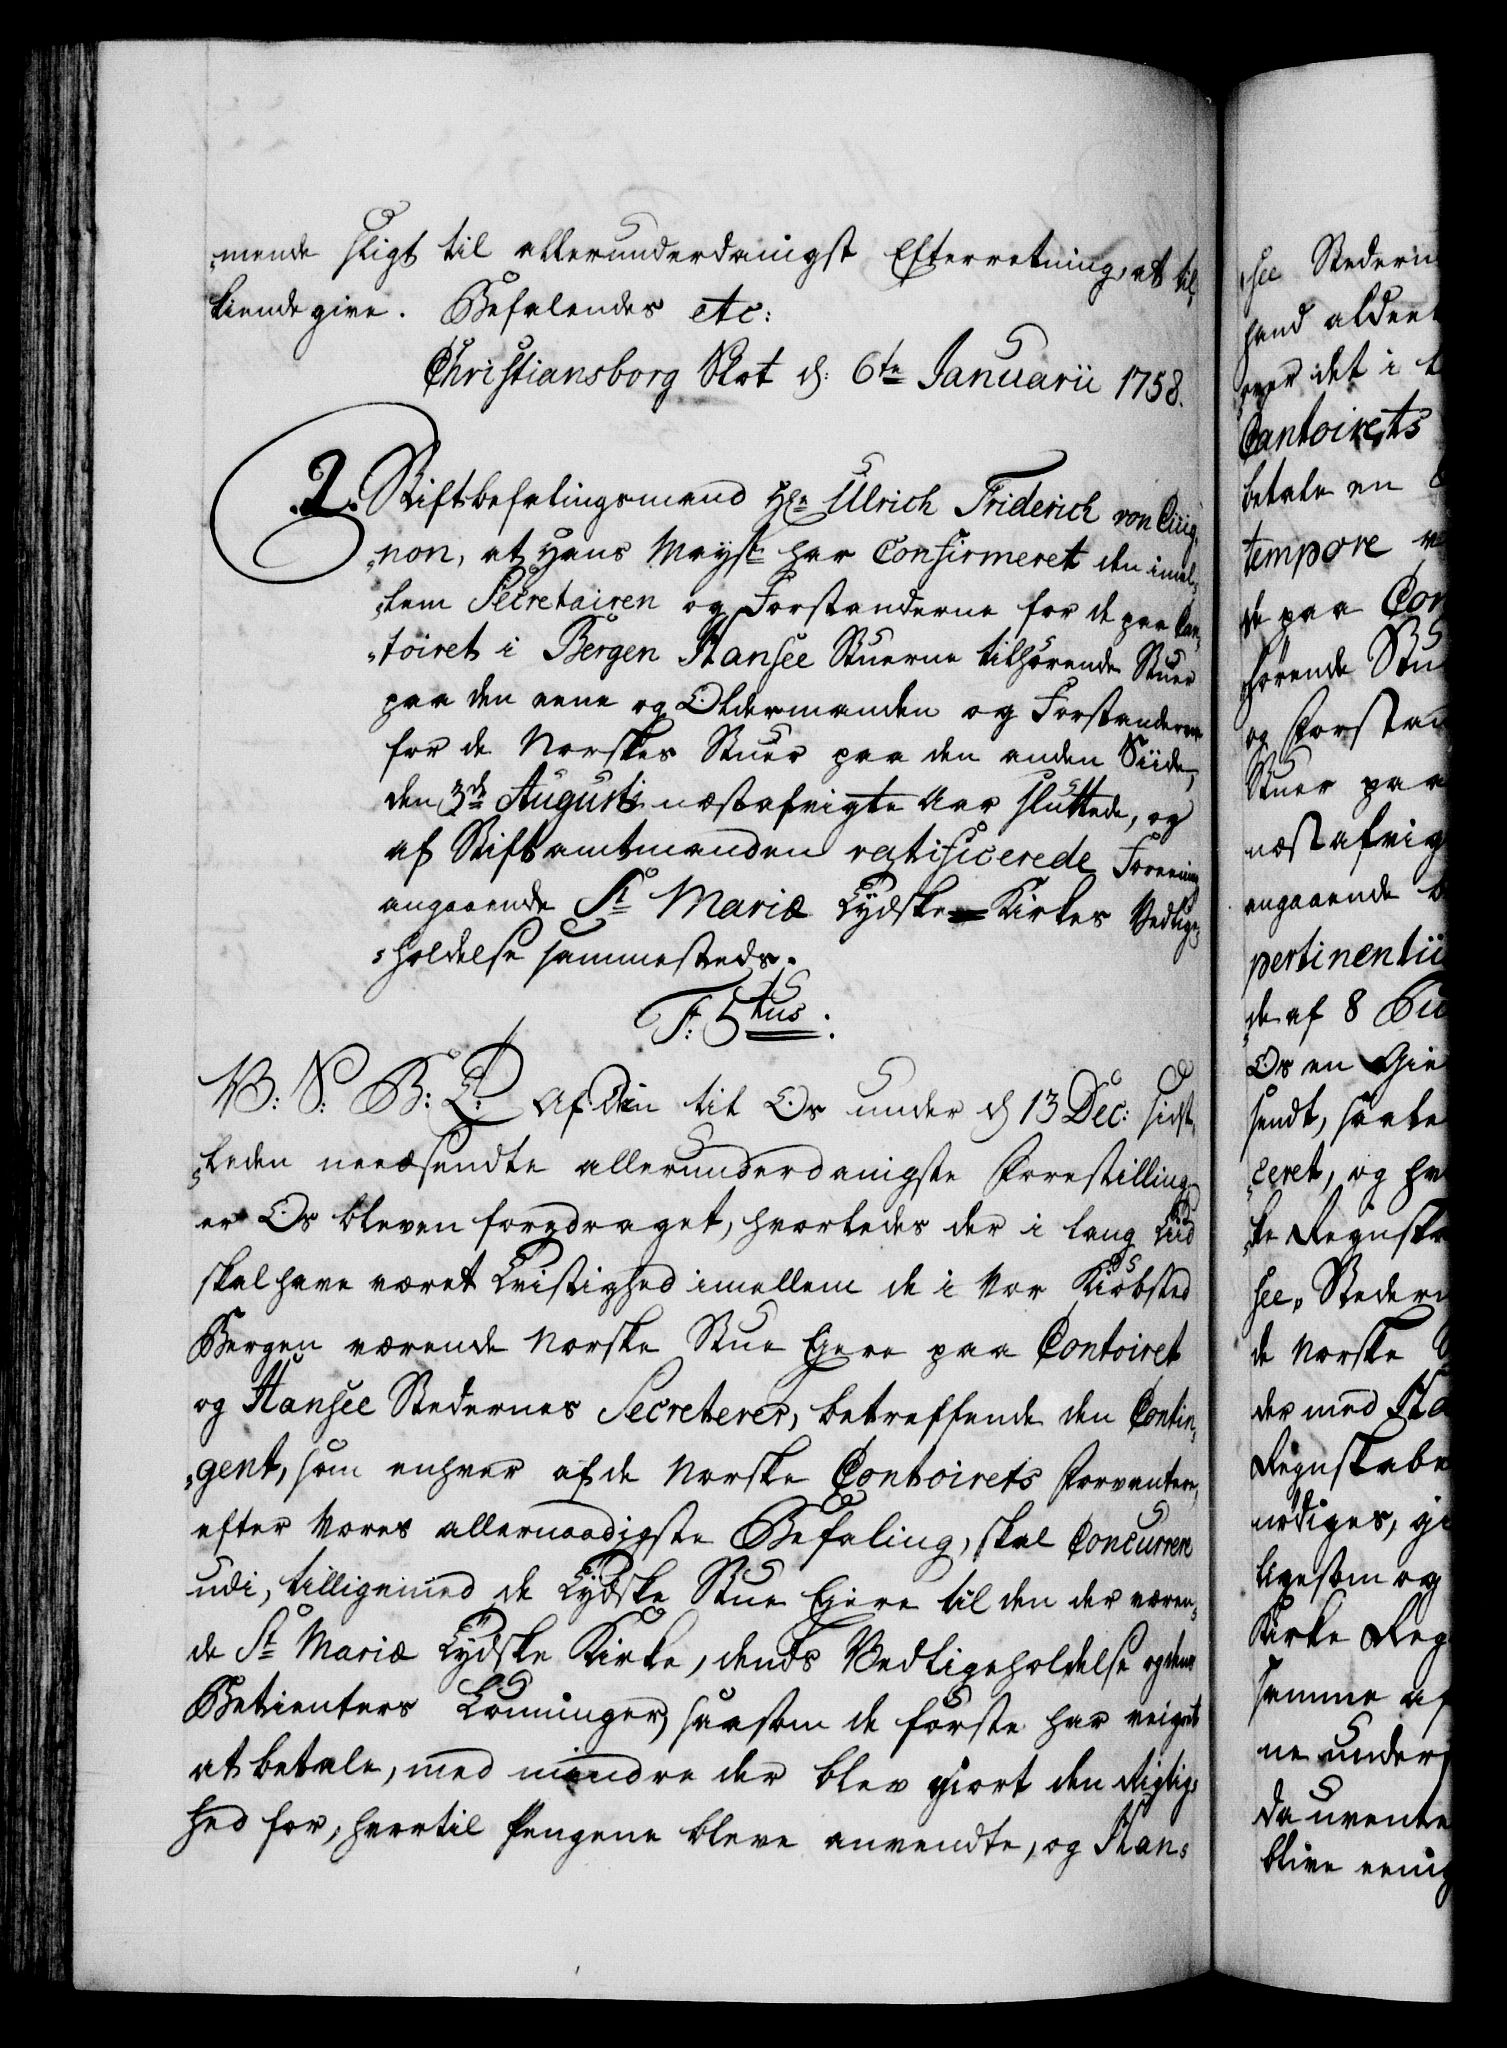 „mende sligt til allerunderdanigst Efterretning, at til„
kiende give. Befalendes etc:
Christiansborg Slot d: 6te Januarii 1758.
2. Stiftbefalingsmand Hr Ulrich Friderich von Cüig„
„non, at Hans Mayst: har Confirmeret den imel„
„lem Secretairen og Forstanderne for de paa Con„
„toiret i Bergen Hansee Stuerne tilhørende Stuer
paa den eene og Oldermanden og Forstanderne
for de Norskes Stuer paa den anden Siide,
den 3de Augusti næstafvigte Aar sluttede, og
af Stiftamtmanden ratificerede Foreening
angaaende St Mariæ Tydske Kirkes Vedlige„
„holdelse sammesteds.
F: 5tus:
V: S: G: T: Af Din til Os under d 13 Dec: sidst„
„leden needsendte allerunderdanigste Forestilling
er Os bleven foredraget, hvorledes der i lang Tiid
skal have været Tvistighed imellem de i Vor Kiøbsted
Bergen værende Norske Stue Eyere paa Contoiret
og Hansee Stædernes Secreterer, betreffende den Contin„
„gent, som enhver af de Norske Contoirets Forvantere,
efter Vores allernaadigste Befaling, skal Concurrere
udi, tilligemed de Tydske Stue Eyere til den der væren„
de St Mariæ Tydske Kirke, dends Vedligeholdelse og dens
Betienters Lønninger, saasom de første har veigret
at betale, med mindre der blev giort den Rigtig„
hed for, hvortil Pengene bleve anvendte, og Han„
„see Stederne
hand aldeel
over det i
Contoirets
betale en
tempore
de paa Con
hørende Stu
og Forstan
Stuer paa
næst afvig
angaaende
pertinentii
de af 8
Os en Gie
sendt, saale
ceret, og hv
ke Regnska
see„ Stedern
de Norske
der med Ha
Regnskabe
nødiges, gi
ligesom og
Kirke Reg
samme af
ne under
da uvente
blive eenig